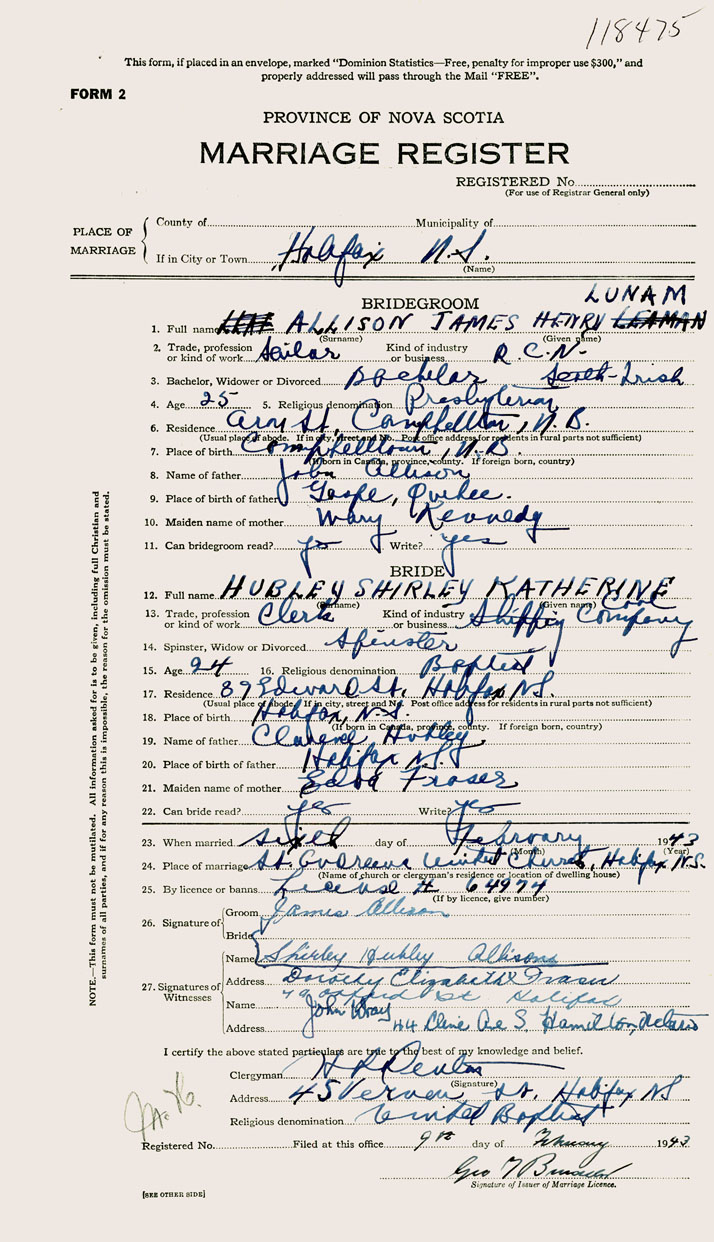 118475
This form, if placed in an envelope, marked "Dominion Statistics—Free, penalty for improper use $300," and
properly addressed will pass through the Mail "FREE".
FORM 2
PROVINCE OF NOVA SCOTIA
MARRIAGE REGISTER
REGISTERED No.
(For use of Registrar General only)
PLACE OF MARRIAGE
County of Municipality of
If in City or Town Halifax N.S.
(Name)
BRIDEGROOM LUNAM
1. Full name ALLISON JAMES HENRY LEAMAN
(Surname) (Given name)
2. Trade, profession or kind of work Sailor Kind of industry or business R.C.N.
3. Bachelor, Widower or Divorced Bachelor Scotch-Irish
4. Age 25 5. Religious denomination Presbyterian
6. Residence Aron St, Campbellton, N.B.
(Usual place of abode. If in city, street and No. Post office address for residents in rural parts not sufficient)
7. Place of birth Campbelltown, N.B.
(If born in Canada, province, county. If foreign born, country)
8. Name of father John Allison
9. Place of birth of father Gaspe, Quebec.
10. Maiden name of mother Mary Kennedy
11. Can bridegroom read? yes Write? yes
BRIDE
12. Full name HUBLEY SHIRLEY KATHERINE
(Surname) (Given name)
13. Trade, profession or kind of work Clerk Kind of industry or business Shipping Company
14. Spinster, Widow or Divorced Spinster
15. Age 24 16. Religious denomination Baptist
17. Residence 89 Edward St, Halifax N.S.
(Usual place of abode. If in city, street and No. Post office address for residents in rural parts not sufficient)
18. Place of birth Halifax, N.S.
(If born in Canada, province, county. If foreign born, country)
19. Name of father Clarence Hubley
20. Place of birth of father Halifax N.S.
21. Maiden name of mother Edna Fraser
22. Can bride read? yes Write? yes
23. When married sixth day of February 1943
(Month) (Year)
24. Place of marriage St. Andrews United Church, Halifax N.S.
(Name of church or clergyman's residence or location of dwelling house)
25. By licence or banns License # 64974
(If by licence, give number)
26. Signature of
Groom James Allison
Bride Shirley Hubley Allison
27. Signatures of Witnesses
Name Dorothy Elizabeth Fraser
Address 79 Oxford St Halifax
Name John Bray
Address 44 Cline Ave S, Hamilton, Ontario
I certify the above stated particulars are true to the best of my knowledge and belief.
Clergyman
(Signature)
Address 45 Vernon St. Halifax NS
Religious denomination United Baptist
Registered No. Filed at this office 9th day of February 1943
Geo
Signature of Issuer of Marriage Licence.
[SEE OTHER SIDE]
NOTE.—This form must not be mutilated. All information asked for is to be given, including full Christian and
surnames of all parties, and if for any reason this is impossible, the reason for the omission must be stated.